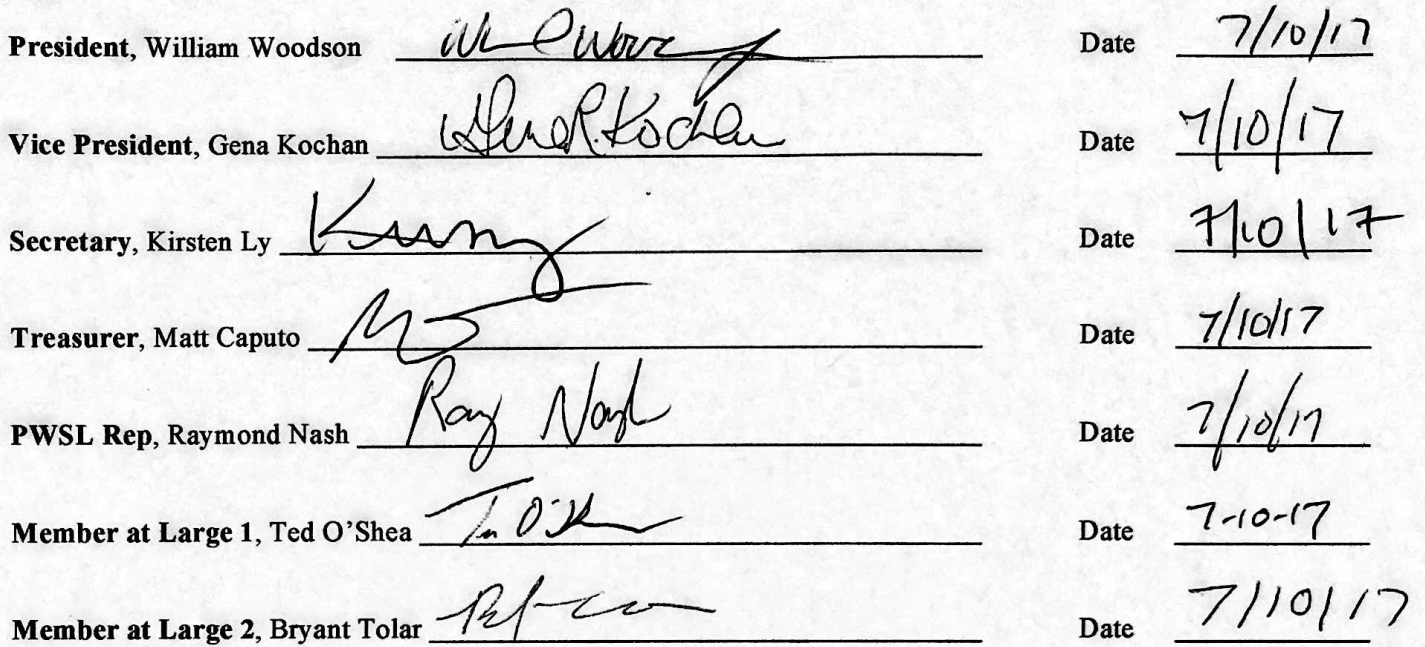 President, William Woodson Date 7/10/17
Vice President, Gena Kochan Gena R. Kochan Date 7/10/17
Secretary, Kirsten Ly Date 7/10/17
Treasurer, Matt Caputo Date 7/10/17
PWSL Rep, Raymond Nash Ray Nash Date 7/10/17
Member at Large 1, Ted O'Shea Date 7-10-17
Member at Large 2, Bryant Tolar Date 7/10/17